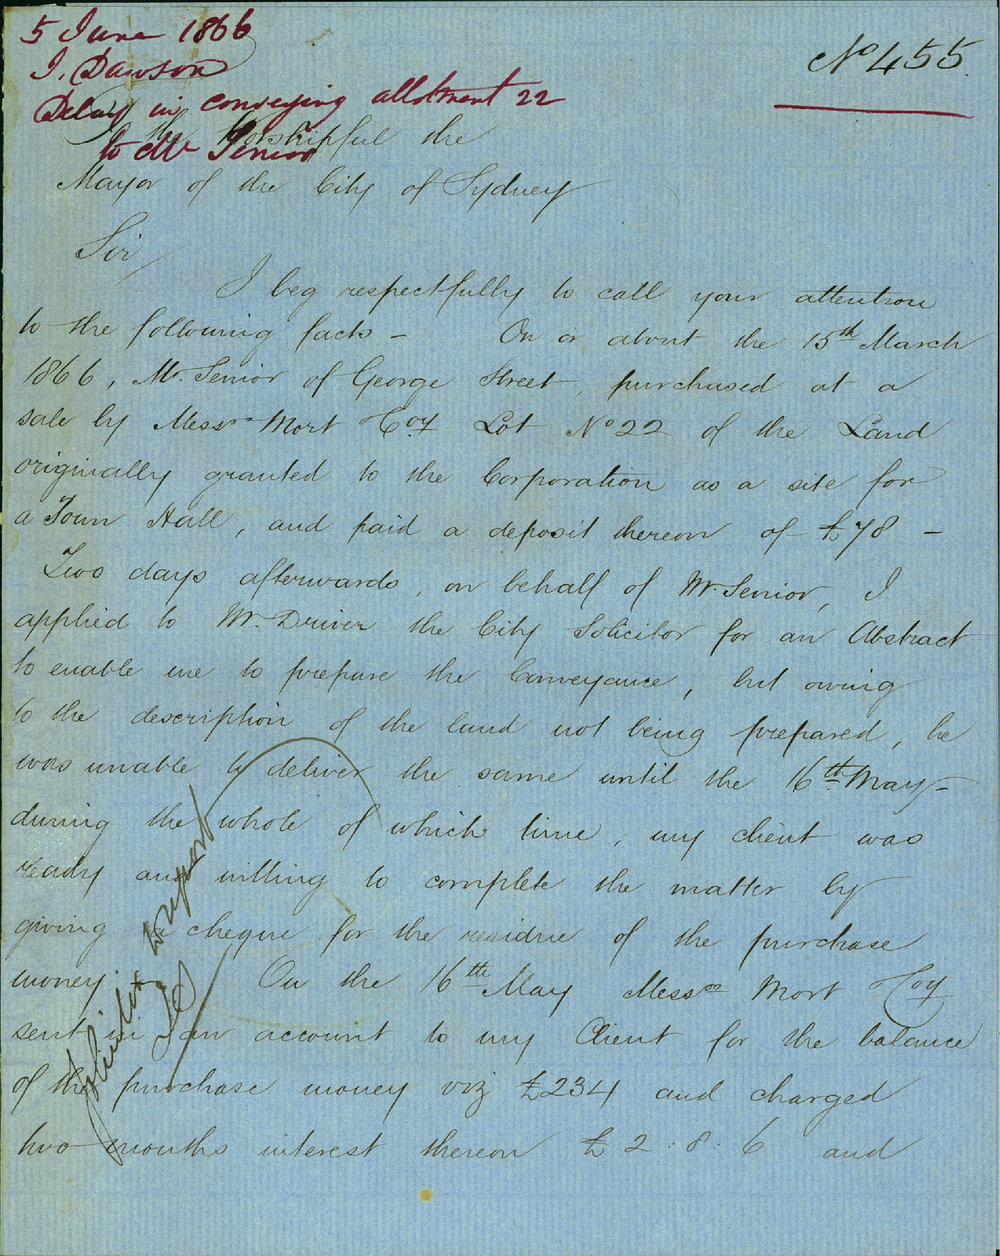 5 June 1866
J. Dawson
Delay in conveying allotment 22
to Mr Senior
No 455
To the Worshipful the
Mayor of the City of Sydney
Sir
I beg respectfully to call your attention
to the following facts – On or about the 15th March
1866, Mr. Senior of George Street, purchased at a
sale by Messrs Mort & Coy Lot No 22 of the Land
originally granted to the Corporation as a site for
a Town Hall, and paid a deposit thereon of £78 –
Two days afterwards, on behalf of Mr. Senior, I
applied to Mr. Driver the City Solicitor for an Abstract
to enable me to prepare the Conveyance, but owing
to the description of the land not being prepared, he
was unable to deliver the same until the 16th May –
during the whole of which time, my client was
ready and willing to complete the matter by
giving a cheque for the residue of the purchase
money. On the 16th May Messrs Mort & Coy
sent in an account to my Client for the balance
of the purchase money viz £234 and charged
two months interest thereon £2:8:6 and
Solicitor to report